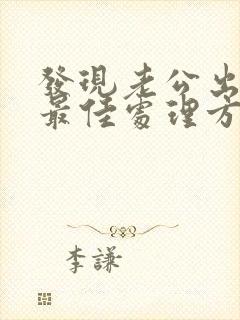 發現老公出
最佳處理方
李謙